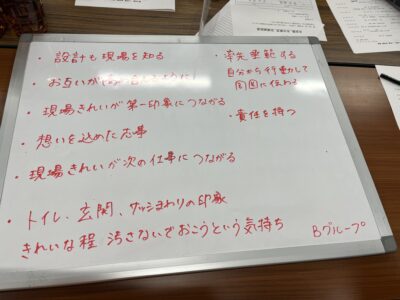 ・設計も現場を知る
・お互いが
・現場きれいが第一印象につながる
・想いを込めた応募
・現場きれいが次の仕事につながる
・トイレ、玄関、サッシまわりの印象
きれいな程 汚さないでおこうという気持ち
・率先垂範する
自分から行動して
周囲に伝わる
・責任を持つ
Bグループ